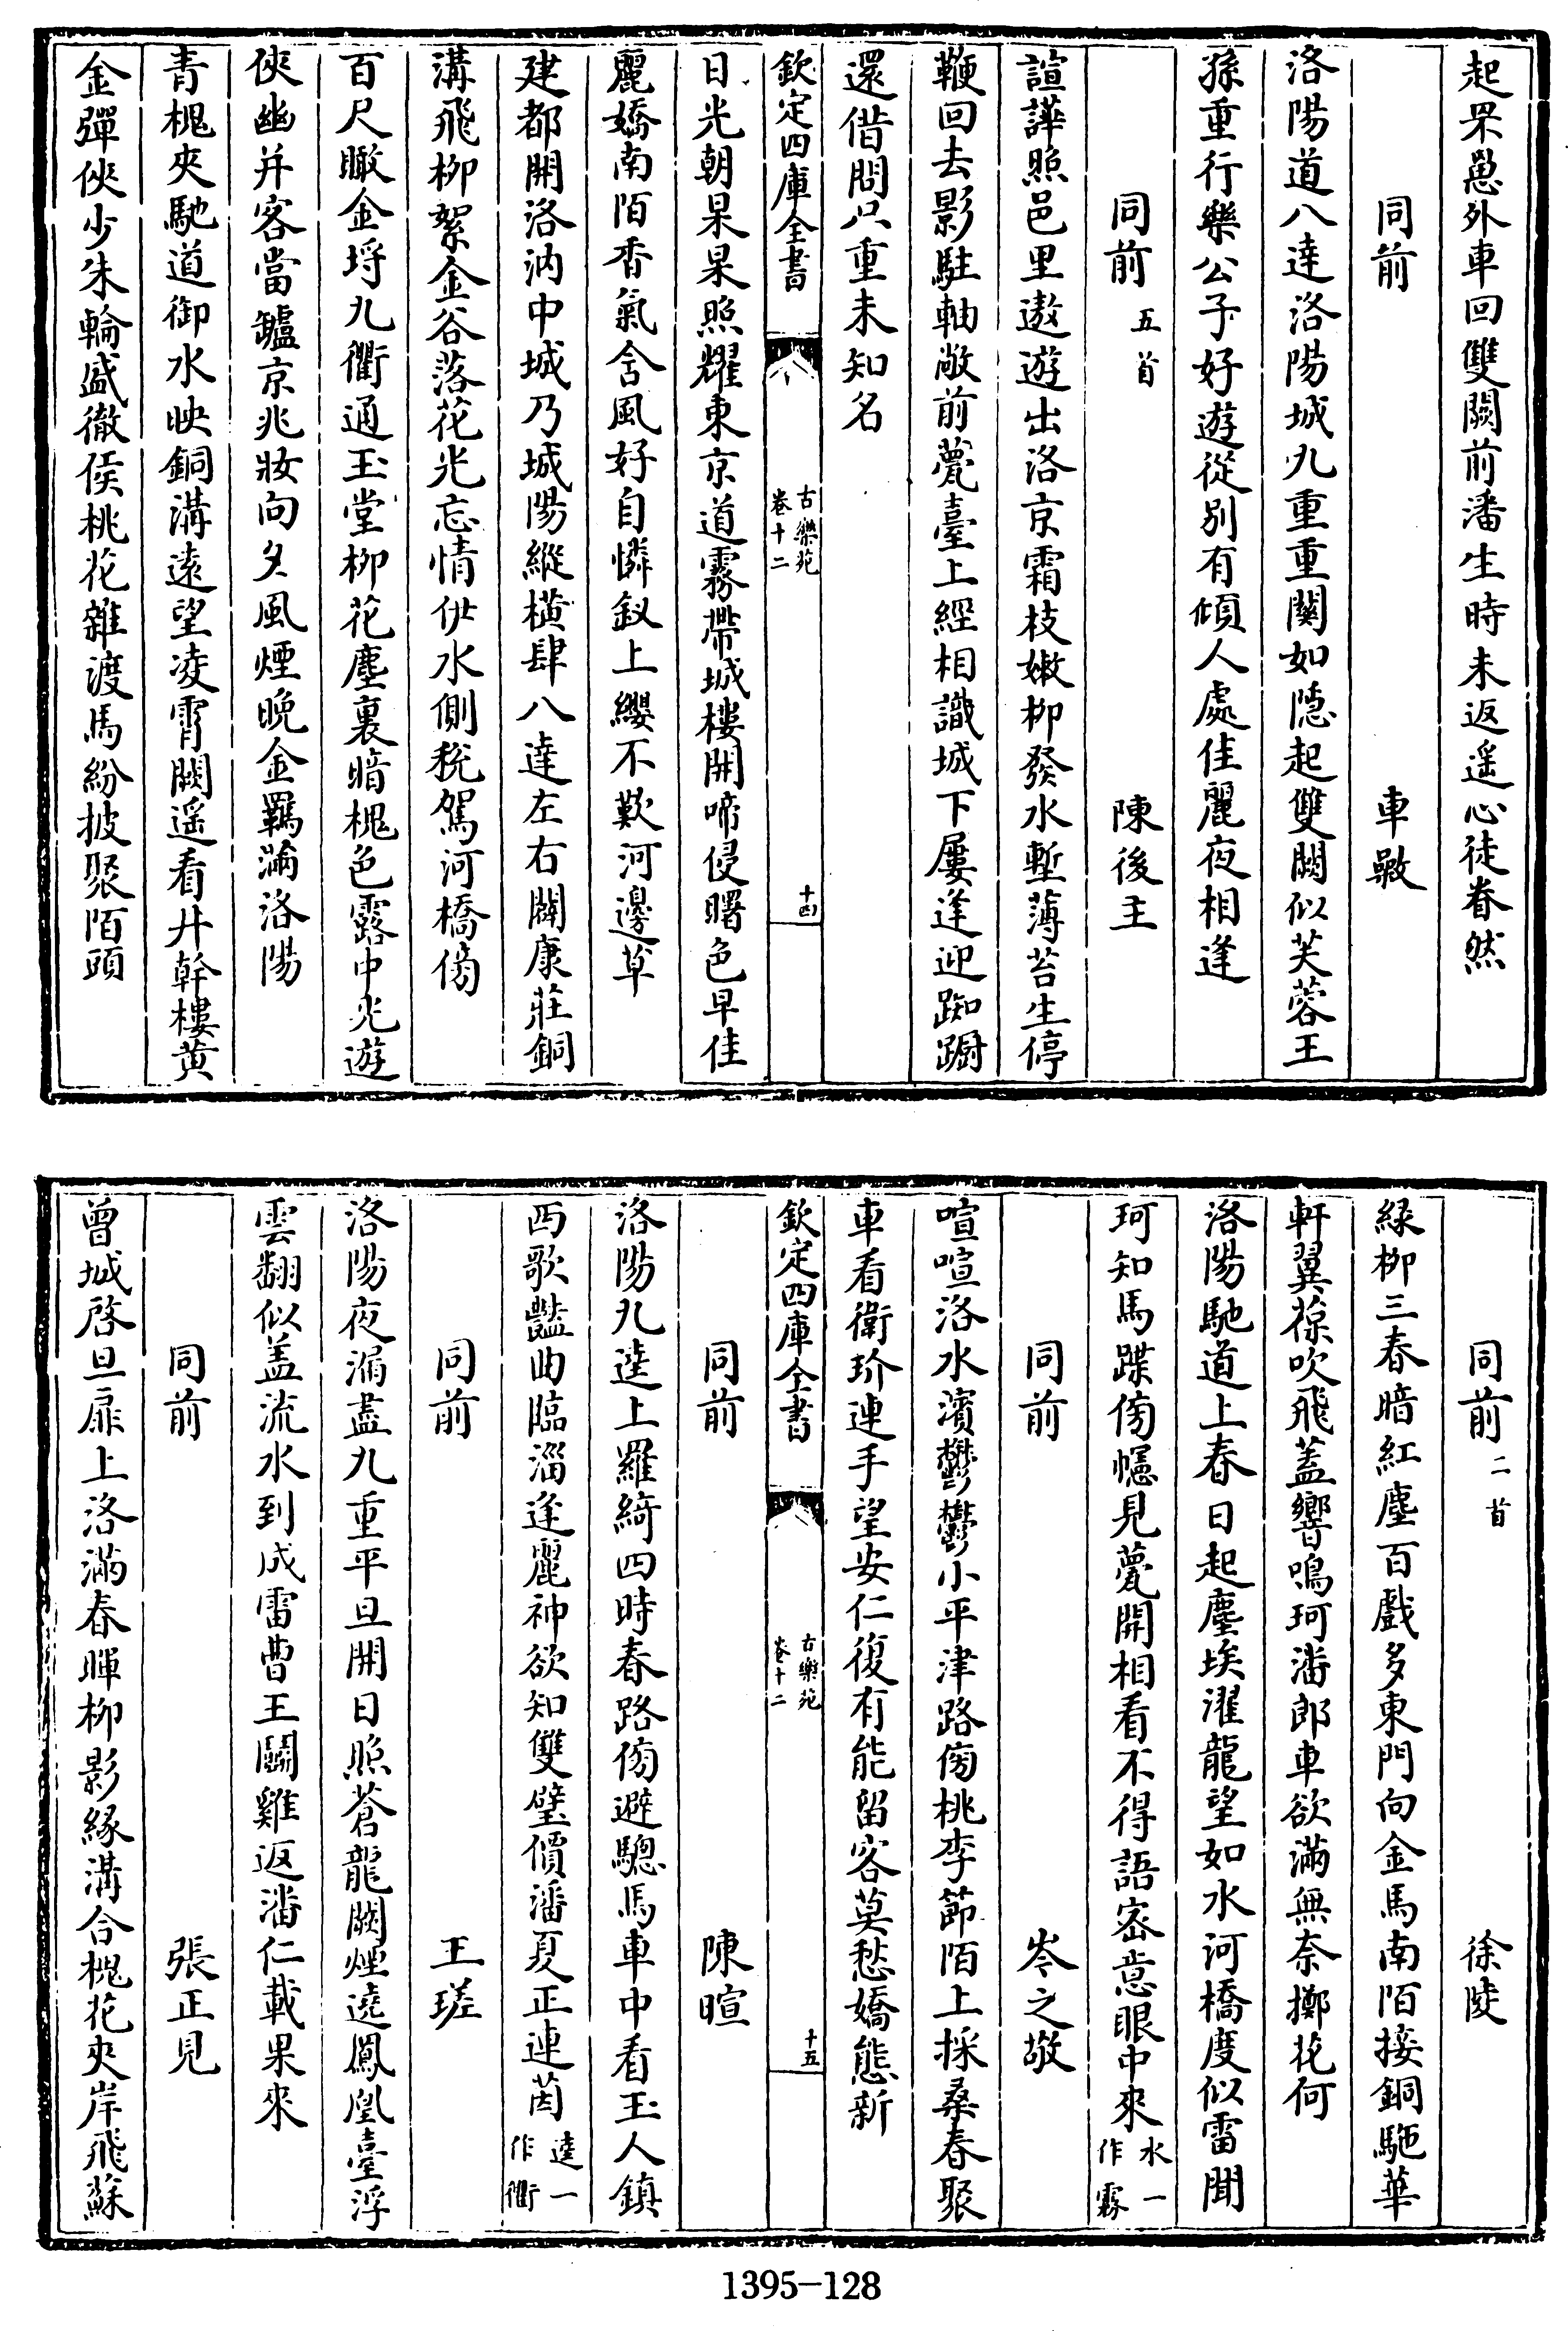 起罘罳外車回雙闕前潘生時未返遥心徒眷然
同前 車𣤶
洛陽道八達洛陽城九重重關如隠起雙闕似芙蓉王
孫重行樂公子好遊從别有傾人處佳麗夜相逢
同前 五首 陳後主
諠譁照邑里遨遊出洛京霜枝嫩柳發水塹薄苔生停
鞭回去影駐軸敞前甍臺上經相識城下屢逢迎踟蹰
還借問只重未知名
欽定四庫全書 古樂苑 卷十二 十四
日光朝杲杲照耀東京道霧帶城樓開啼侵曙色早佳
麗嬌南陌香氣含風好自憐釵上纓不歎河邊草
建都開洛汭中城乃城陽縱横肆八達左右闢康莊銅
溝飛柳絮金谷落花光忘情伊水側税駕河橋傍
百尺瞰金埒九衢通玉堂柳花塵裏暗槐色露中光遊
俠幽并客當罏京兆妝向夕風煙晚金羈滿洛陽
青槐夾馳道御水映銅溝遠望凌霄闕遥看井幹樓黄
金彈俠少朱輪盛徹侯桃花雜渡馬紛披聚陌頭
同前 二首 徐陵
緑柳三春暗紅塵百戲多東門向金馬南陌接銅駞華
軒翼葆吹飛蓋響鳴珂潘郎車欲滿無奈擲花何
洛陽馳道上春日起塵埃濯龍望如水河橋度似雷聞
珂知馬蹀傍幰見甍開相看不得語密意眼中來 水一作霧
同前 岑之敬
喧喧洛水濱鬱鬱小平津路傍桃李節陌上採桑春聚
車看衛玠連手望安仁復有能留客莫愁嬌態新
欽定四庫全書 古樂苑 卷十二 十五
同前 陳暄
洛陽九逵上羅綺四時春路傍避驄馬車中看玉人鎮
西歌豔曲臨淄逢麗神欲知雙璧價潘夏正連茵 逵一作衢
同前 王瑳
洛陽夜漏盡九重平旦開日照蒼龍闕煙遶鳳凰臺浮
雲翻似盖流水到成雷曹王鬭雞返潘仁載果來
同前 張正見
曾城啓旦扉上洛滿春暉柳影緣溝合槐花夾岸飛蘇
1395-128